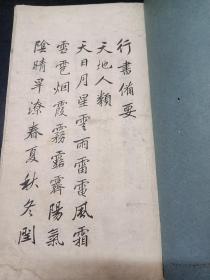 行書備要
天地人類
天日月星雲雨雷電風霜
雪雹烟霞霧露霽陽氣
陰晴旱潦春夏秋冬閏